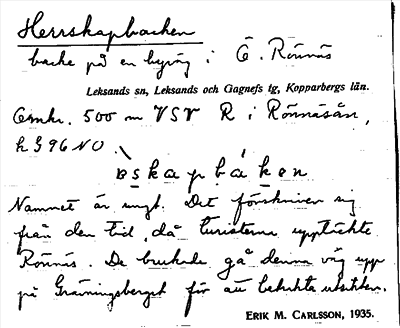 Herrskapbacken
backe på en byväg i Ö. Rönnäs
Leksands sn, Leksands och Gagnefs tg, Kopparbergs län.
Omkr. 500 m VSV R i Rönnäsån,
k 996 NO.
skapbakən
Namnet är ungt. Det förskriver sig
från den tid, då turisterna upptäckte
Rönnäs. De brukade gå denna väg upp
på Gräningsberget för att betrakta utsikten.
ERIK M. CARLSSON, 1935.